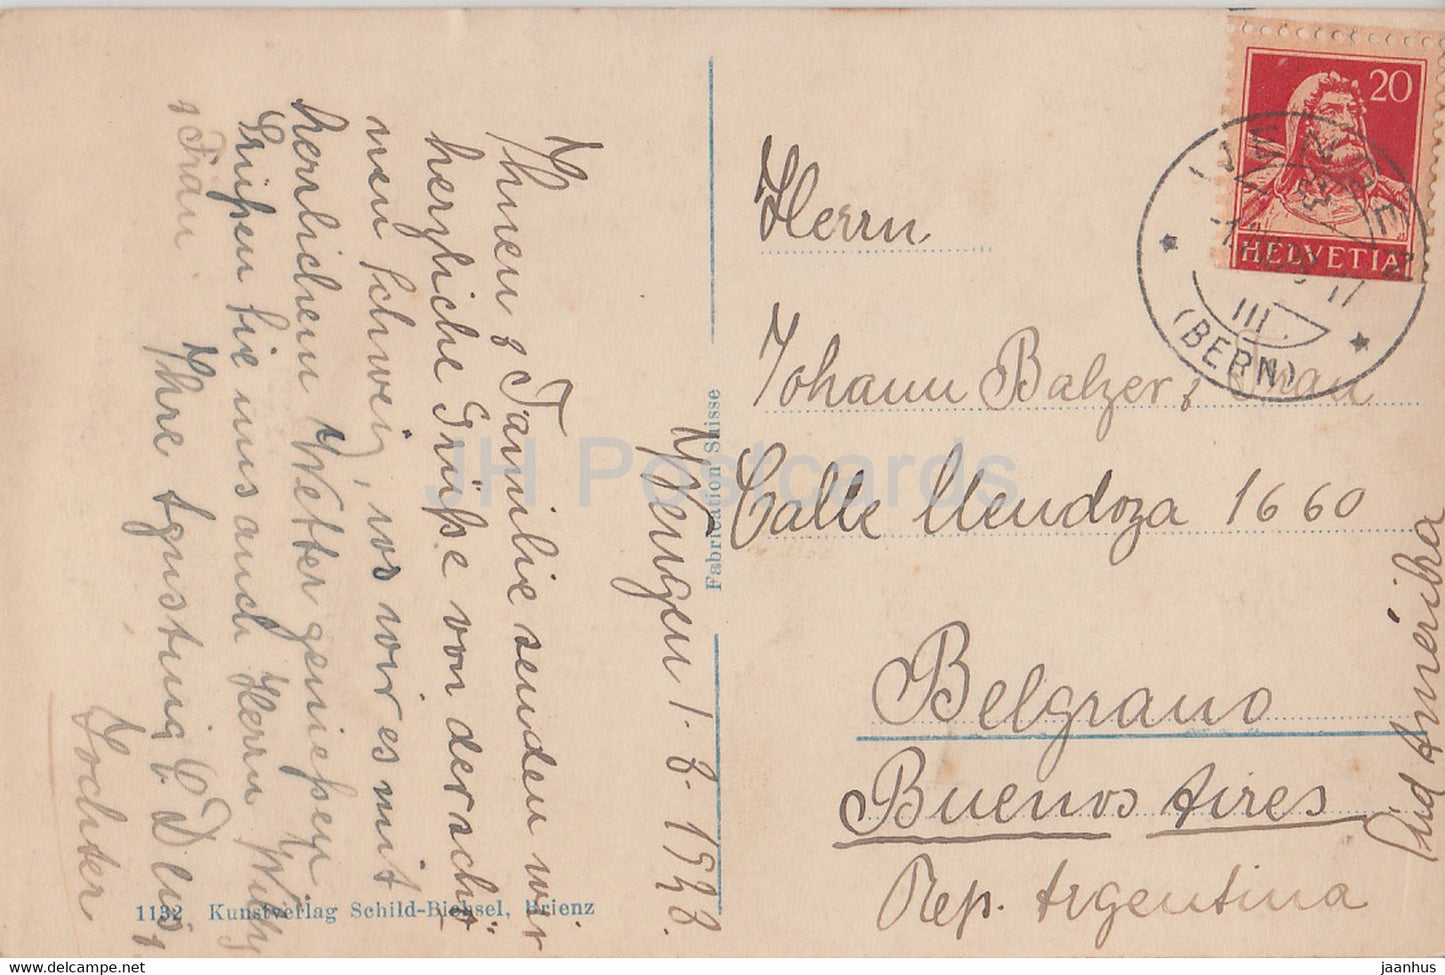 Wengen 1-8-1928.
Ihnen & Familie senden wir
herzliche Grüße von der schö
nen Schweiz, wo wir es mit
herrlichem Wetter genießen
Grüßen Sie uns auch Herrn Willy
& Frau
Ihre Agustung C. D &
Tochter
1132 Kunstverlag Schild-Bichsel, Brienz
Fabrication Suisse
20
HELVETIA
WENGEN
(BERN)
III
Herrn
Johann Balzer & Frau
Calle Mendoza 1660
Belgrano
Buenos Aires
Rep. Argentina
Süd Amérika
JH Postcards
jaanhus.com